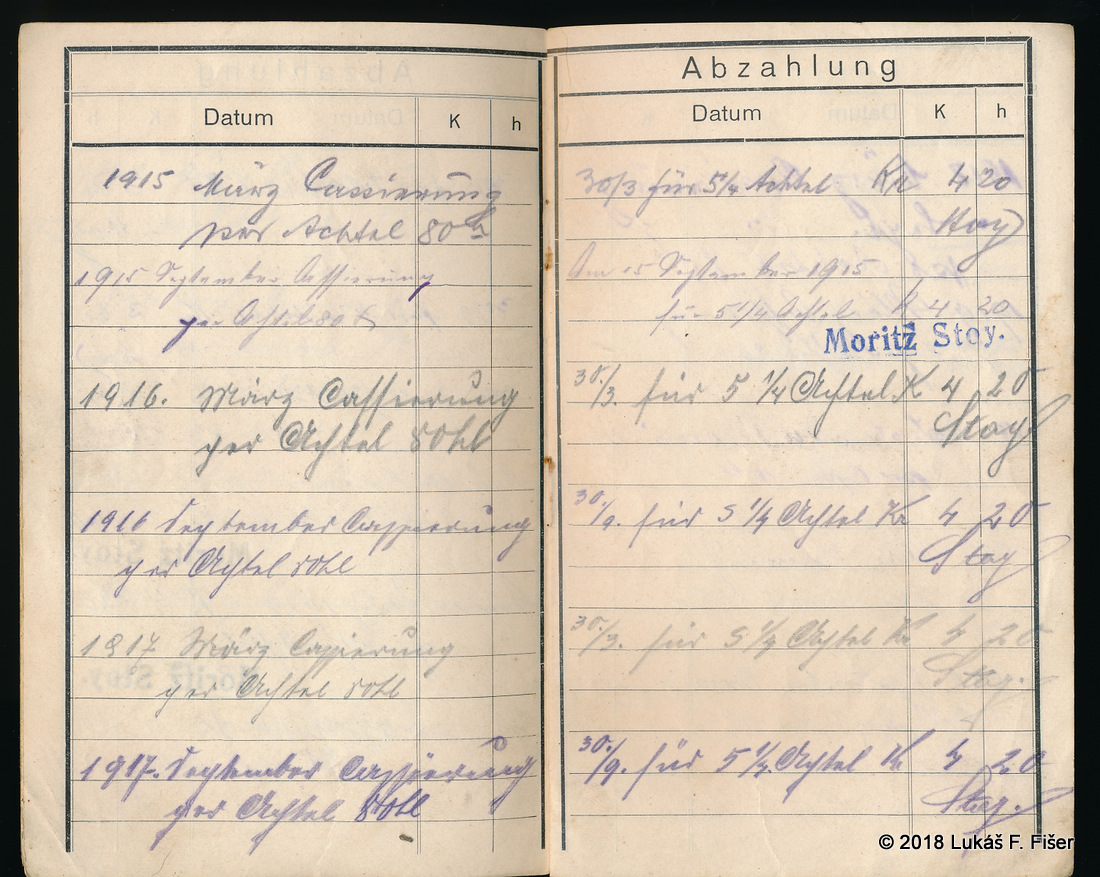 Datum K h
1915 März Cassierung
per Achtel 80 h
1915 September Cassierung
per Achtel 80 h
1916. März Cassierung
per Achtel 80 hl
1916 September Cassierung
per Achtel 80hl
1917 März Cassierung
per Achtel 80hl
1917. September Cassierung
per Achtel 80hl
Abzahlung
Datum K h
30/3 für 5 1/4 Achtel Kr 4 20
Stoy
Am 15 September 1915
für 5 1/4 Achtel K 4 20
Moritz Stoy.
30./3. für 5 1/4 Achtel K 4 20
Stoy
30./9. für 5 1/4 Achtel Kr 4 20
Stoy
30./3. für 5 1/4 Achtel Kr 4 20
Stoy.
30./9. für 5 1/4 Achtel Kr 4 20
Stoy.
© 2018 Lukáš F. Fišer